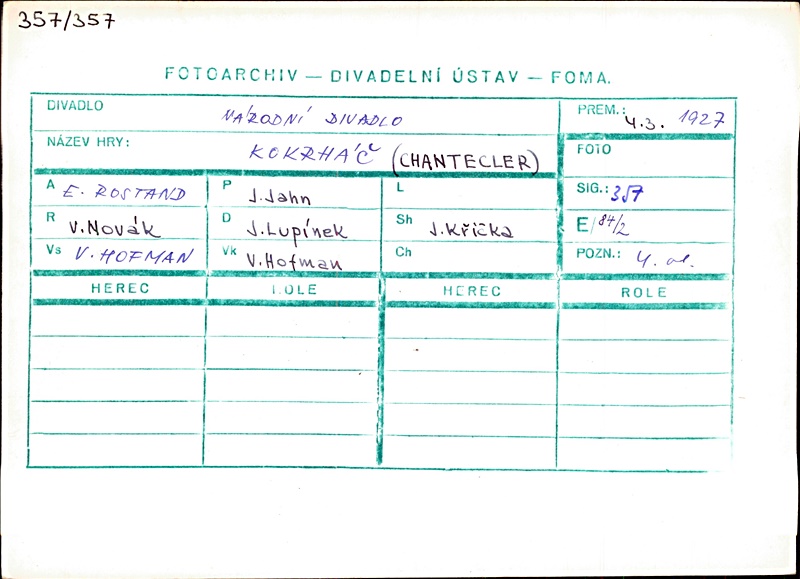 357/357
FOTOARCHIV — DIVADELNÍ ÚSTAV — FOMA.
DIVADLO NÁRODNÍ DIVADLO PREM.: 4.3. 1927
NÁZEV HRY: KOKRHÁČ (CHANTECLER) FOTO
A E. ROSTAND P J. Jahn L SIG.: 357
R V. Novák D J. Lupínek Sh J. Křička E/84/2
Vs V. HOFMAN Vk V. Hofman Ch POZN.: 4.
HEREC ROLE HEREC ROLE